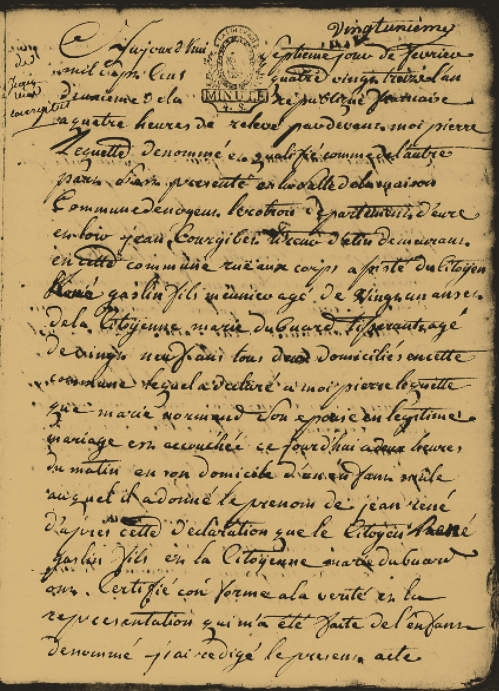 vingtunieme
aujourd'hui septieme jour de fevrier
mil sept cens quatre vingt treize l'an
deuxieme de la republique francaise
a quatre heures de relevé pardevant moi pierre
Lequette denommé et qualifié comme de l'autre
part s'est presenté en la salle de la maison
Commune de nogent le rotrou departement d'eure
et loir jean Courgibet demeurant
en cette commune rue aux corps assisté du Citoyen
René gaslin fils meunier agé de vingt un ans et
de la Citoyenne marie dubuard tisserant agé
de vingt neuf ans tous deux domiciliés en cette
commune lequel a declaré a moi pierre lequette
que marie normand son epouse en legitime
mariage est accouchée ce jourd'hui a deux heures
du matin en son domicile d'un enfant mâle
auquel il a donné le prenom de jean rené
d'apres cette declaration que le Citoyen René
gaslin fils et la Citoyenne marie dubuard
ont Certifié conforme a la verité et la
representation qui m'a été faite de l'enfant
denommé j'ai redigé le present acte
MINUTE
4. S.